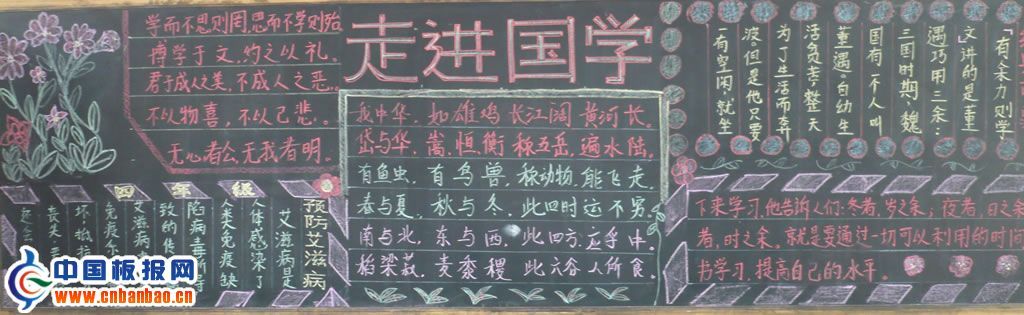 学而不思则罔,思而不学则殆
博学于文,约之以礼。
君子成人之美,不成人之恶。
不以物喜,不以己悲。
无心者公,无我者明。
走进国学
我中华,如雄鸡 长江阔 黄河长。
岱与华,嵩,恒衡 称五岳,遍水陆。
有鱼虫,有鸟兽,称动物,能飞走。
春与夏,秋与冬,此四时 运不穷。
南与北,东与西 此四方,应乎中。
稻梁菽,麦黍稷 此六谷 人所食。
「有余力则学
文」讲的是董
遇巧用三余:
三国时期,魏
国有一个人叫
董遇。自幼生
活贫苦,整天
为了生活而奔
波。但是他只要
一有空闲,就坐
下来学习,他告诉人们:冬者,岁之余;夜者,日之余
者,时之余。就是要通过一切可以利用的时间
书学习,提高自己的水平。
四年级
预防艾滋病
艾滋病是
人体感染了
人类免疫缺
陷病毒所
致的传
艾滋病
免疫
坏,抵
丧失
中国板报网
www.cnbanbao.cn